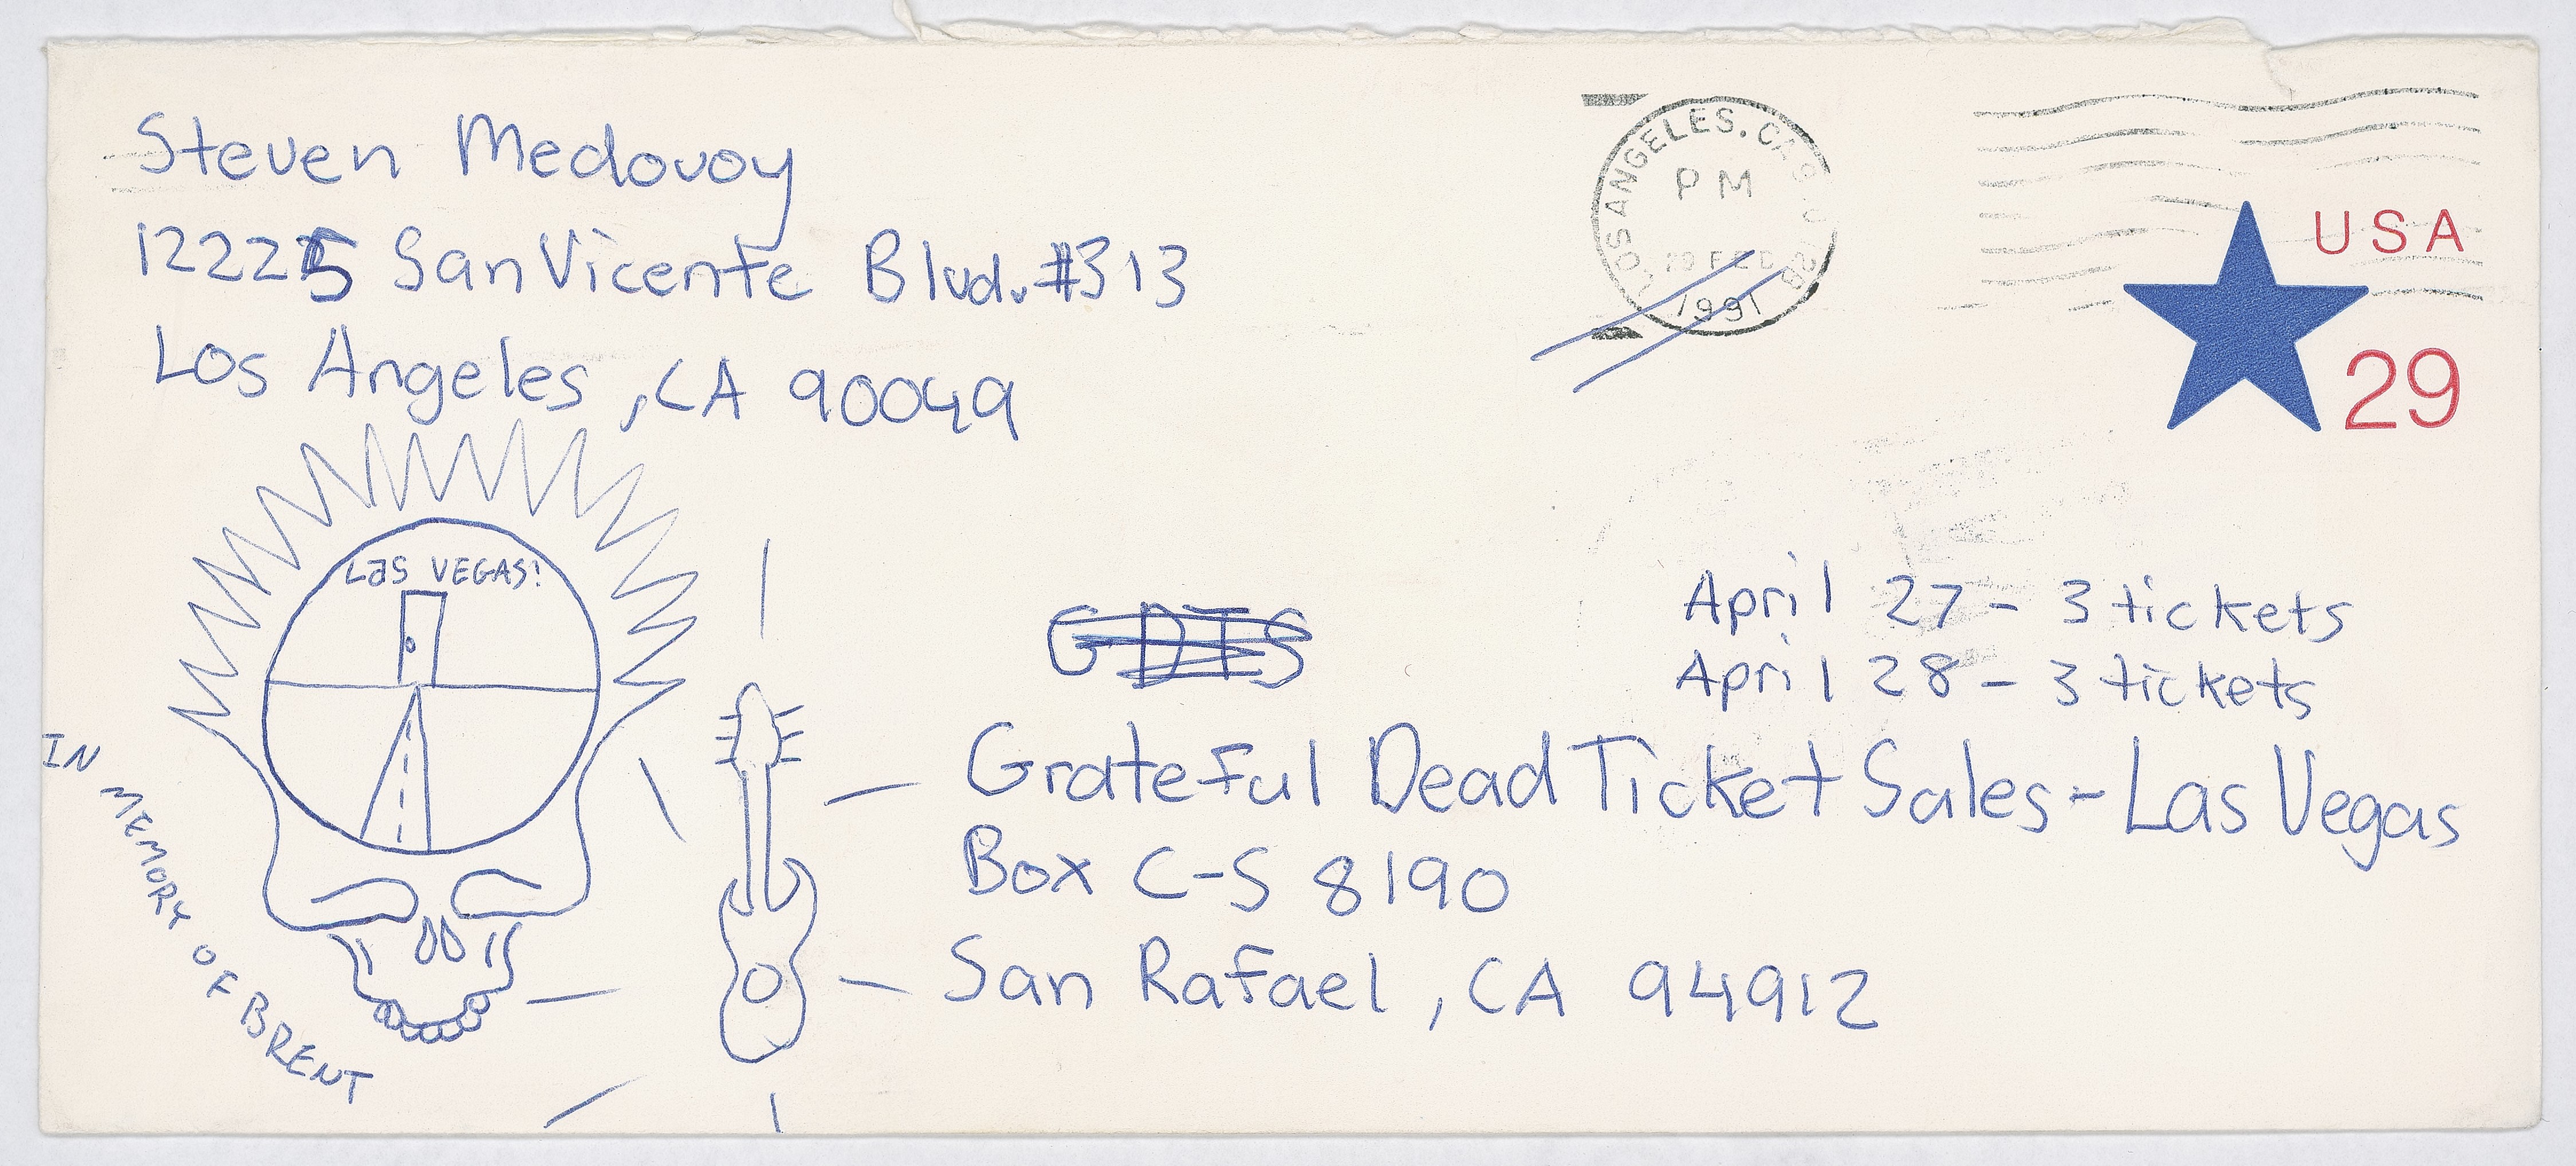 Steven Medovoy
12225 San Vicente Blvd. #313
Los Angeles, CA 90049
LOS ANGELES, CA
PM
1991
USA
29
LAS VEGAS!
IN MEMORY OF BRENT
GDTS
April 27 - 3 tickets
April 28 - 3 tickets
Grateful Dead Ticket Sales - Las Vegas
Box C-S 8190
San Rafael, CA 94912